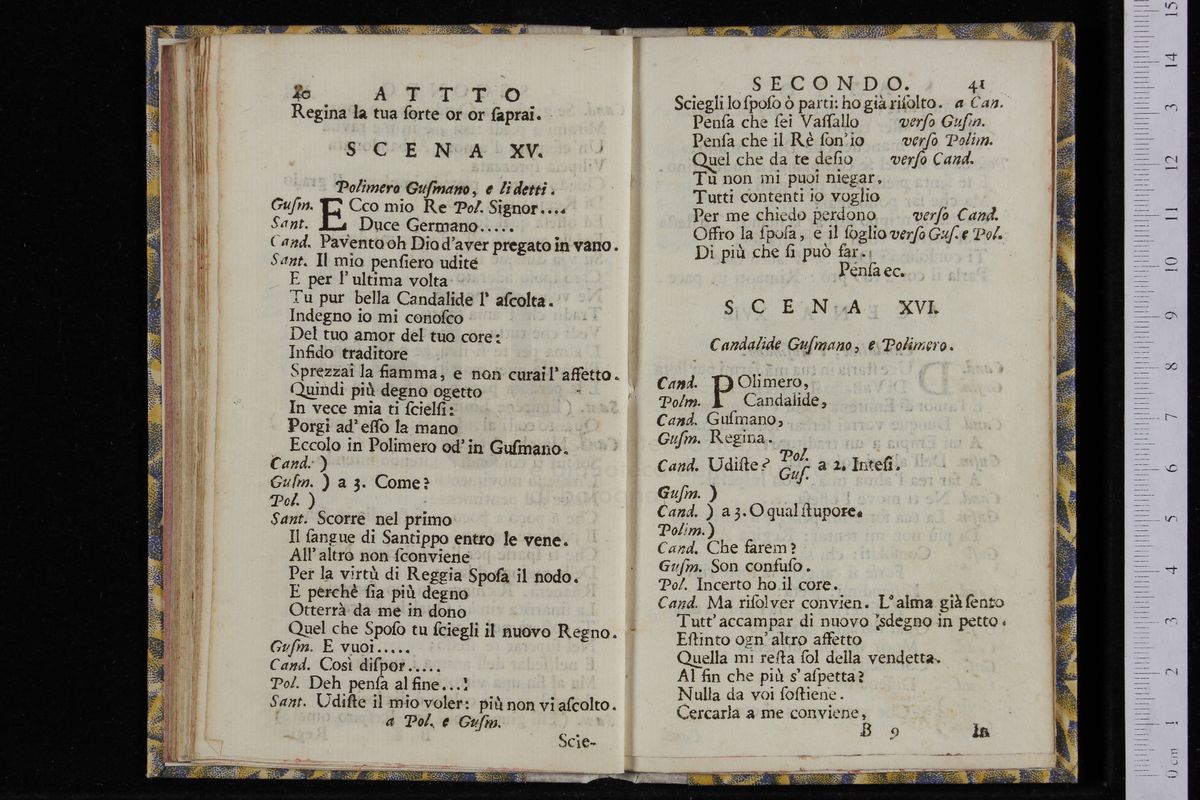 40 ATTTO
Regina la tua ſorte or or ſaprai.
SCENA XV.
Polimero Guſmano, e li detti.
Guſm. ECco mio Re Pol. Signor....
Sant. Duce Germano.....
Cand. Pavento oh Dio d'aver pregato in vano.
Sant. Il mio penſiero udite
E per l'ultima volta
Tu pur bella Candalide l' aſcolta.
Indegno io mi conoſco
Del tuo amor del tuo core:
Infido traditore
Sprezzai la fiamma, e non curai l'affetto.
Quindi più degno ogetto
In vece mia ti ſcielſi:
Porgi ad'eſſo la mano
Eccolo in Polimero od'in Guſmano.
Cand. )
Guſm. ) a 3. Come?
Pol. )
Sant. Scorre nel primo
Il ſangue di Santippo entro le vene.
All'altro non ſconviene
Per la virtù di Reggia Spoſa il nodo.
E perchè ſia più degno
Otterrà da me in dono
Quel che Spoſo tu ſciegli il nuovo Regno.
Guſm. E vuoi.....
Cand. Così diſpor.....
Pol. Deh penſa al fine...!
Sant. Udiſte il mio voler: più non vi aſcolto.
a Pol. e Guſm.
Scie-
SECONDO. 41
Sciegli lo ſpoſo ò parti: ho già riſolto. a Can.
Penſa che ſei Vaſſallo verſo Guſm.
Penſa che il Rè ſon'io verſo Polim.
Quel che da te deſio verſo Cand.
Tu non mi puoi niegar.
Tutti contenti io voglio
Per me chiedo perdono verſo Cand.
Offro la ſpoſa, e il ſoglio verſo Guſ. e Pol.
Di più che ſi può far.
Penſa ec.
SCENA XVI.
Candalide Guſmano, e Polimero.
Cand. POlimero,
Polm. Candalide,
Cand. Guſmano,
Guſm. Regina.
Cand. Udiſte? Pol. Guſ. a 2. Inteſi.
Guſm. )
Cand. ) a 3. O qual ſtupore.
Polim.)
Cand. Che farem?
Guſm. Son confuſo.
Pol. Incerto ho il core.
Cand. Ma riſolver convien. L'alma già ſento
Tutt'accampar di nuovo sdegno in petto.
Eſtinto ogn'altro affetto
Quella mi reſta ſol della vendetta.
Al fin che più s'aſpetta?
Nulla da voi ſoſtiene.
Cercarla a me conviene,
B 9 In